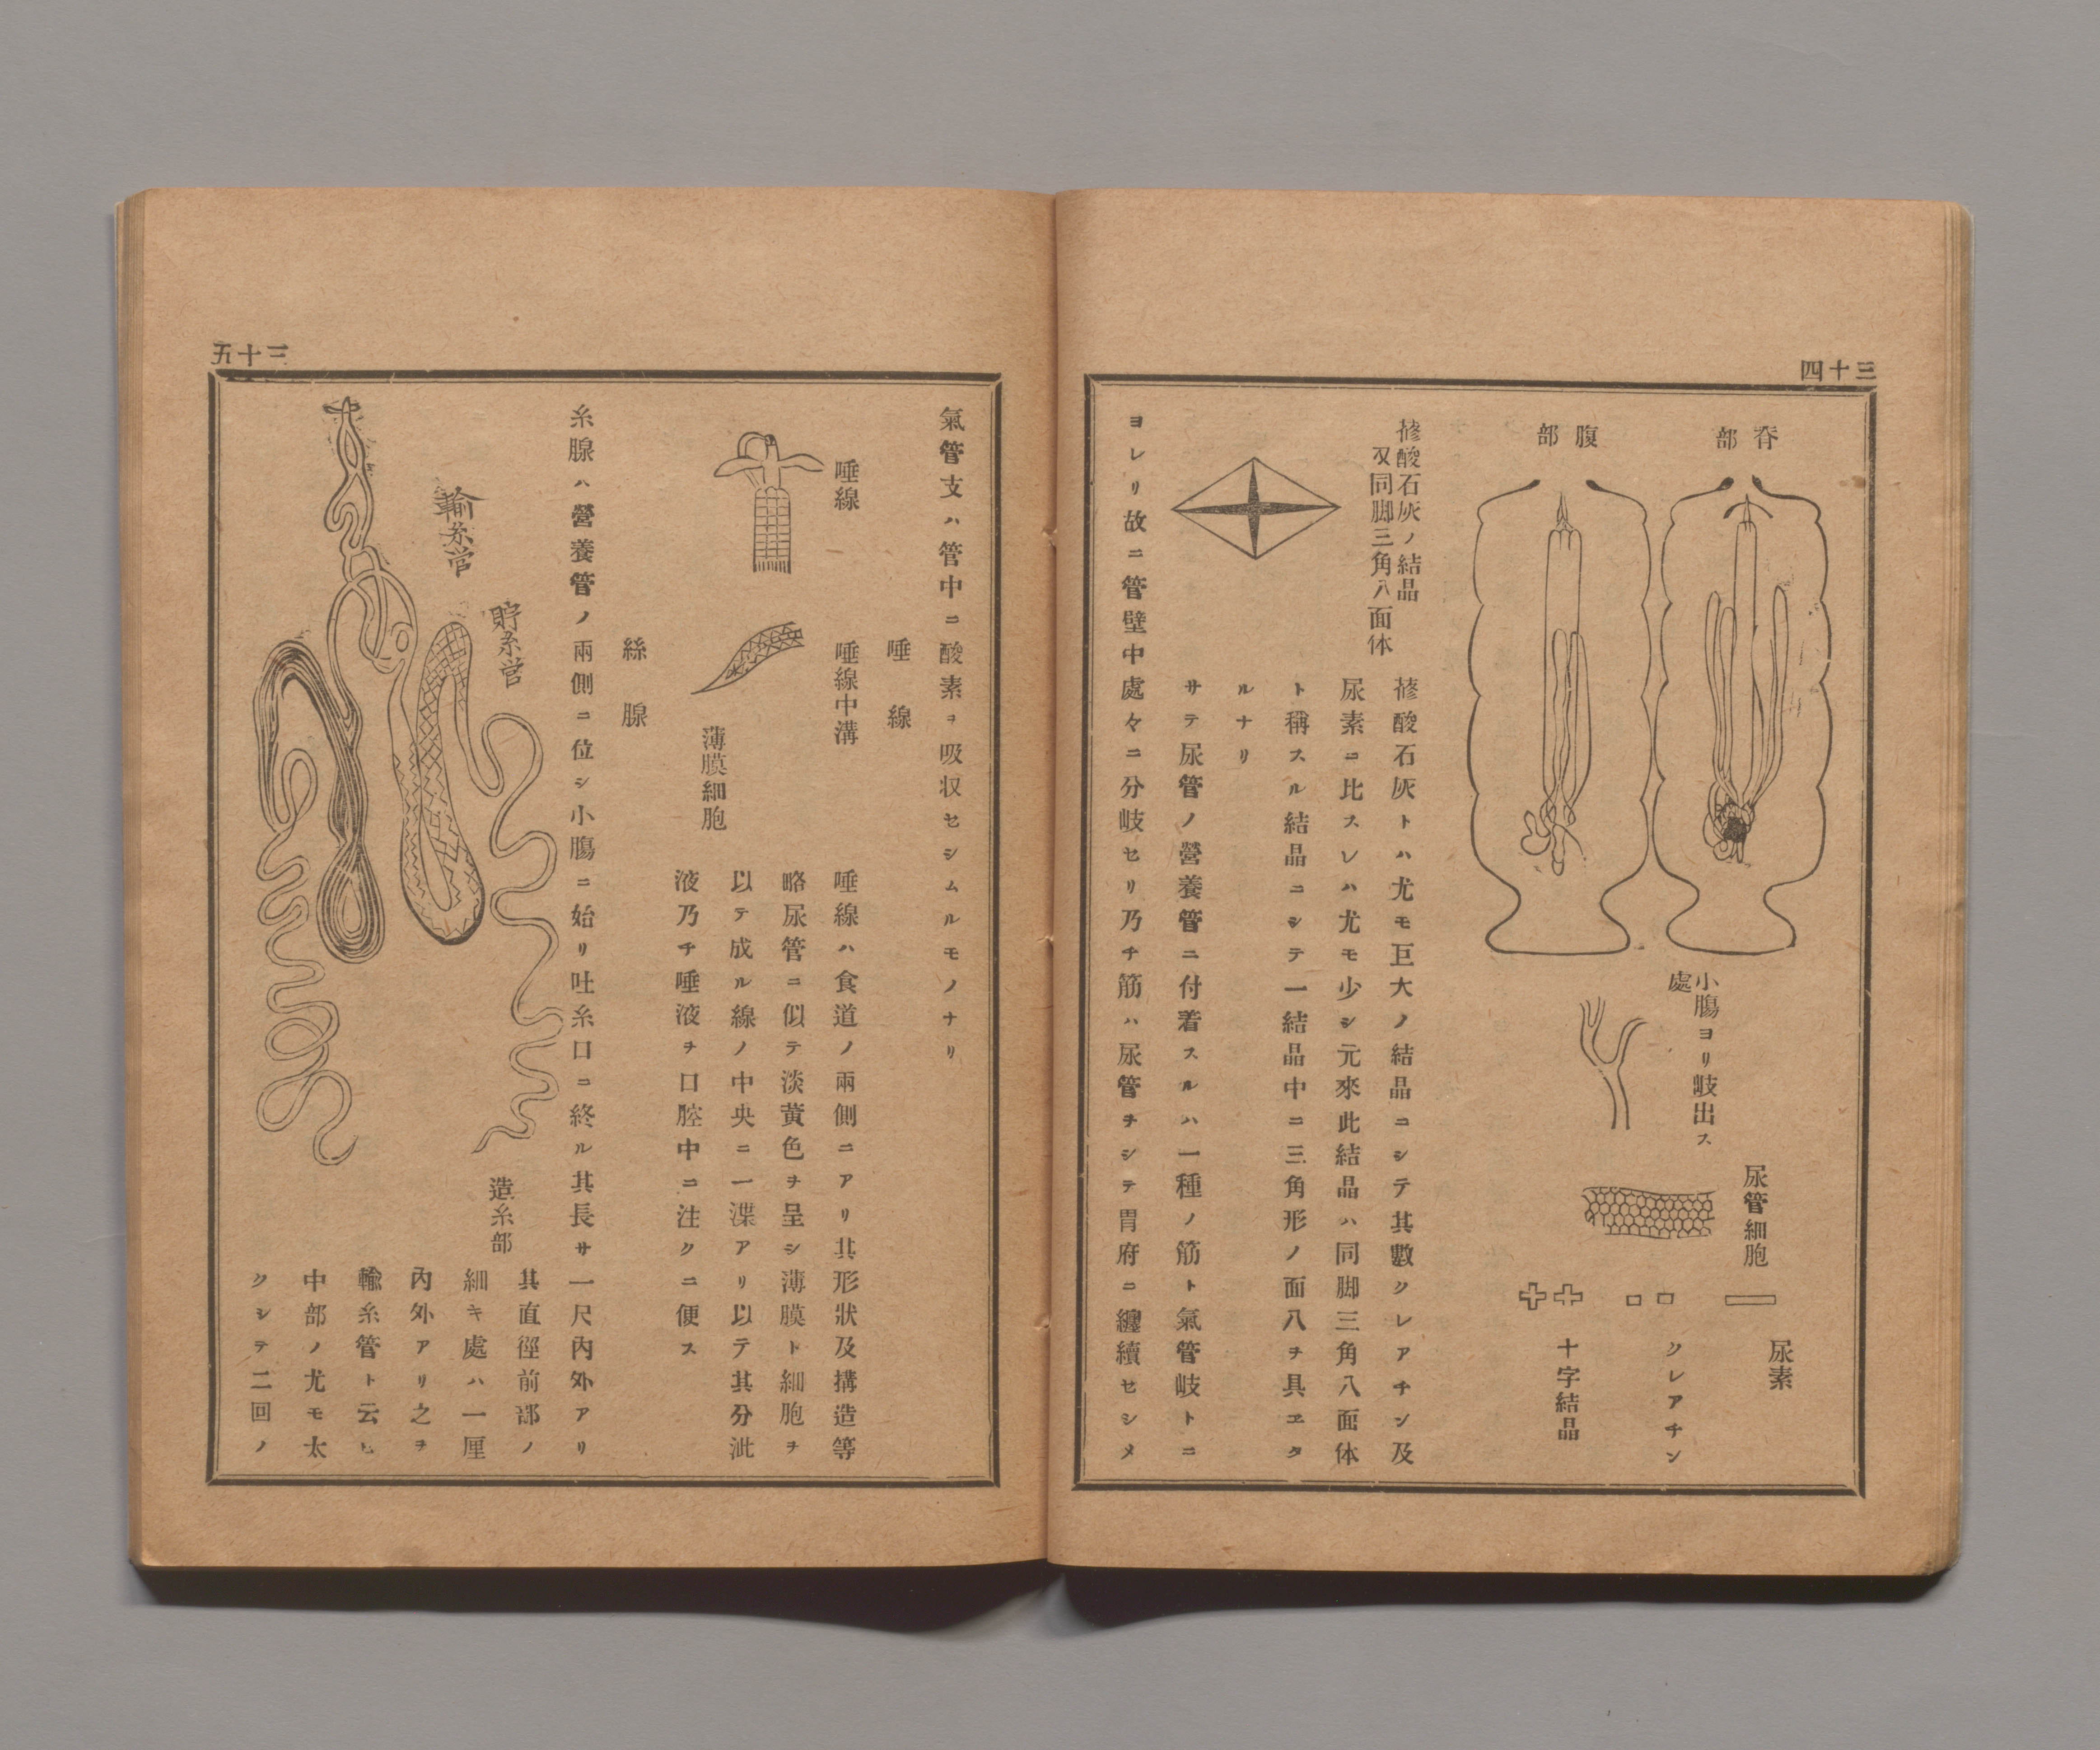 三十四
脊部
腹部
小膓ヨリ岐出ス
處
尿管細胞
尿素
クレアチン
十字結晶
蓚酸石灰ノ結晶
又同脚三角八面体
蓚酸石灰トハ尤モ巨大ノ結晶ニシテ其數クレアチン及
尿素ニ比スレハ尤モ少シ元來此結晶ハ同脚三角八面体
ト稱スル結晶ニシテ一結晶中ニ三角形ノ面八ヲ具ヱタ
ルナリ
サテ尿管ノ營養管ニ付着スルハ一種ノ筋ト氣管岐トニ
ヨレリ故ニ管壁中處々ニ分岐セリ乃チ筋ハ尿管ヲシテ胃府ニ纏續セシメ
三十五
氣管支ハ管中ニ酸素ヲ吸収セシムルモノナリ
唾線
唾線
唾線中溝
薄膜細胞
唾線ハ食道ノ兩側ニアリ其形狀及搆造等
略尿管ニ似テ淡黄色ヲ呈シ薄膜ト細胞ヲ
以テ成ル線ノ中央ニ一渫アリ以テ其分泚
液乃チ唾液ヲ口腔中ニ注クニ便ス
絲腺
糸腺ハ營養管ノ兩側ニ位シ小膓ニ始リ吐糸口ニ終ル其長サ一尺內外アリ
其直徑前部ノ
細キ處ハ一厘
內外アリ之ヲ
輸糸管ト云ヒ
中部ノ尤モ太
クシテ二回ノ
輸糸管
貯糸管
造糸部